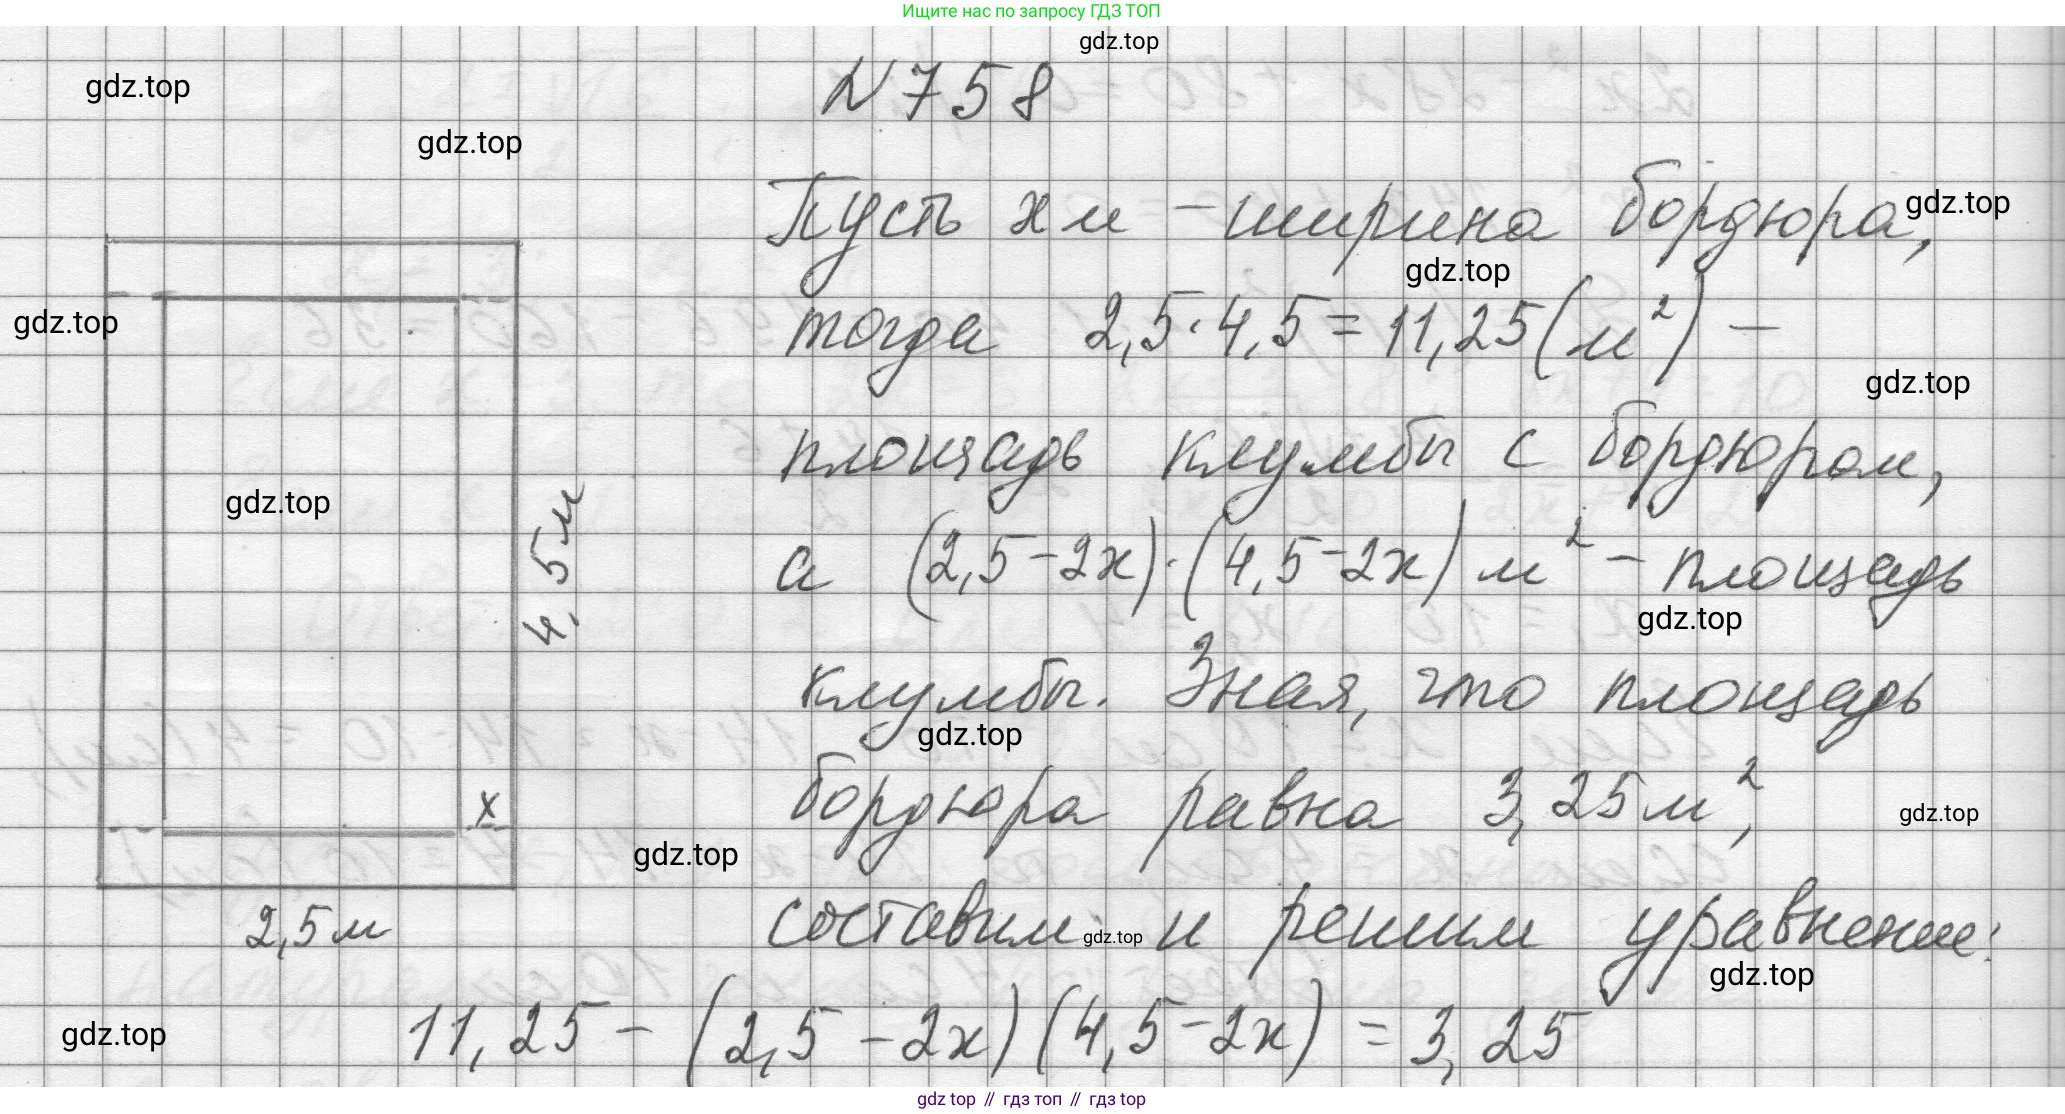 Ищите нас по запросу ГДЗ ТОП
gdz.top
gdz.top
N758
gdz.top
Пусть x м – ширина бордюра,
gdz.top
gdz.top
тогда 2,5·4,5=11,25(м²) –
gdz.top
gdz.top
площадь клумбы с бордюром,
gdz.top
4,5м
а (2,5-2x)·(4,5-2x) м² – площадь
gdz.top
клумбы. Зная, что площадь
gdz.top
бордюра равна 3,25м²,
gdz.top
x
gdz.top
2,5м
составим и решим уравнение:
gdz.top
gdz.top
gdz.top
11,25 – (2,5-2x)(4,5-2x) = 3,25
gdz top // гдз топ // гдз top